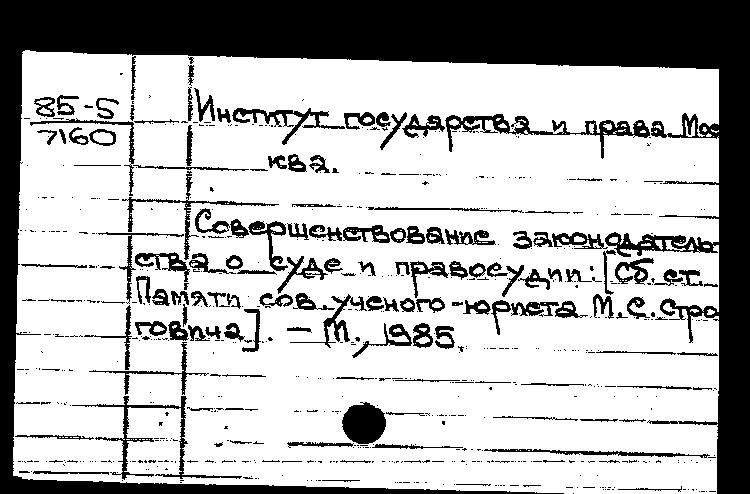 85-5
7160
Институт государства и права. Мос
ква.
Совершенствование законодатель-
ства о суде и правосудии: [Сб. ст.
Памяти сов. ученого-юриста М.С. Стро
говича]. — М., 1985